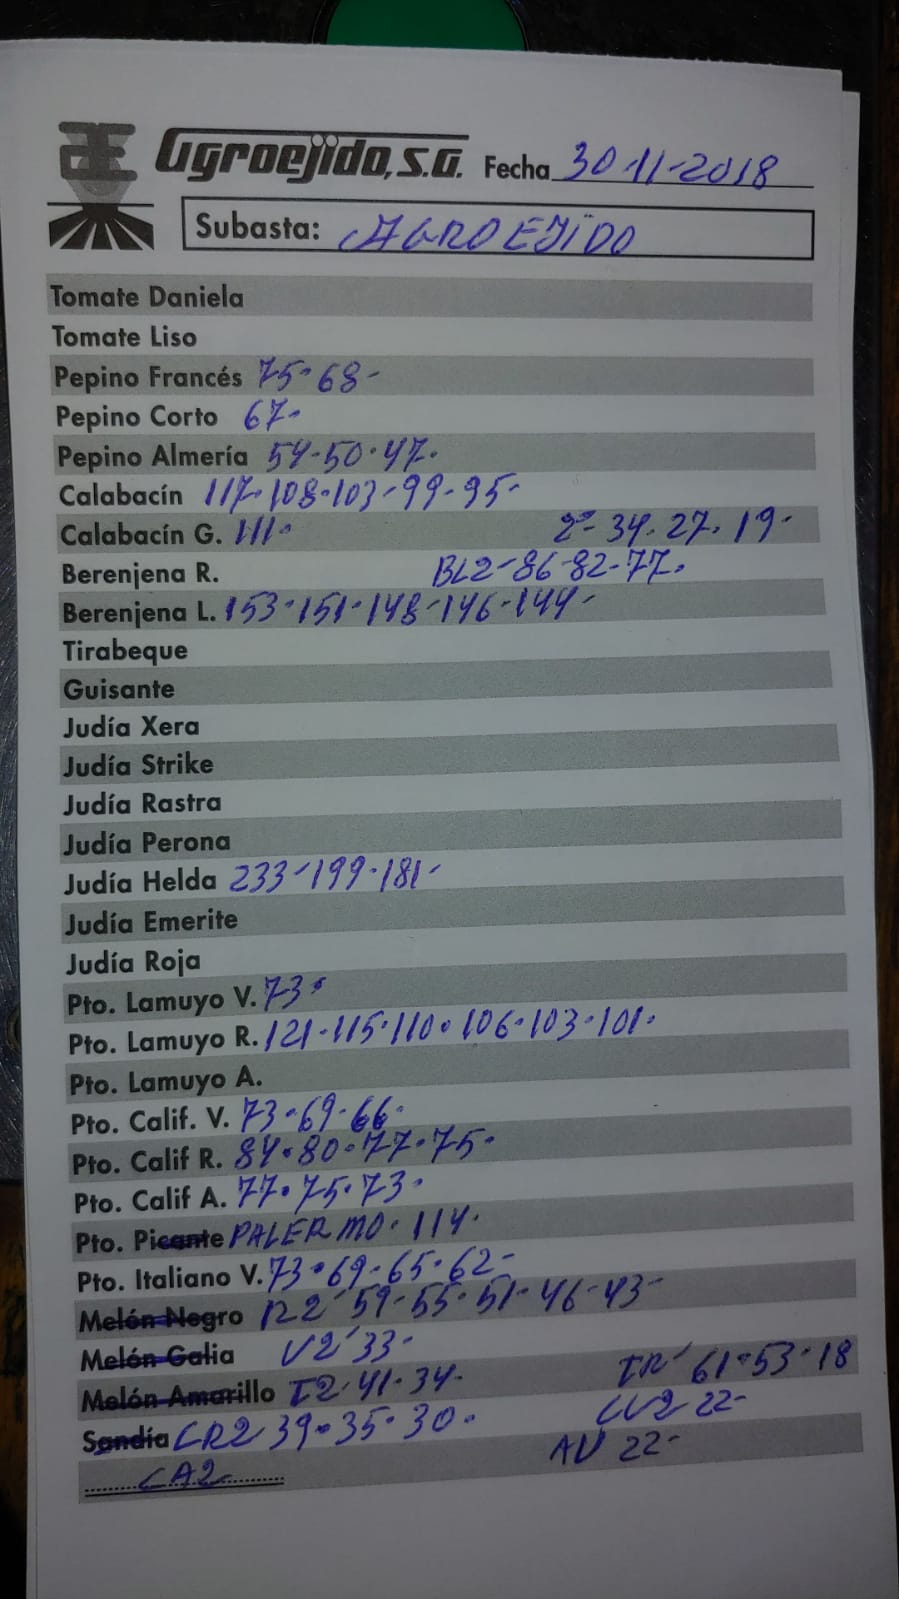 Agroejido, S.A. Fecha 30-11-2018
Subasta: AGROEJIDO
Tomate Daniela
Tomate Liso
Pepino Francés 75-68-
Pepino Corto 67-
Pepino Almería 54-50-47.
Calabacín 117-108-103-99-95-
Calabacín G. 111- 2ª- 34. 27. 19-
Berenjena R. BL2-86-82-77.
Berenjena L. 153-151-148-146-144-
Tirabeque
Guisante
Judía Xera
Judía Strike
Judía Rastra
Judía Perona
Judía Helda 233-199-181-
Judía Emerite
Judía Roja
Pto. Lamuyo V. 73-
Pto. Lamuyo R. 121-115-110-106-103-101-
Pto. Lamuyo A.
Pto. Calif. V. 73-69-66-
Pto. Calif R. 84-80-77-75-
Pto. Calif A. 77-75-73-
Pto. Picante PALERMO- 114-
Pto. Italiano V. 73-69-65-62-
Melón Negro R2 59-55-51-46-43-
Melón Galia V2 33-
Melón Amarillo I2 41-34- IR 61-53-18
Sandía CR2 39-35-30- LV2 22-
CA2 AV 22-